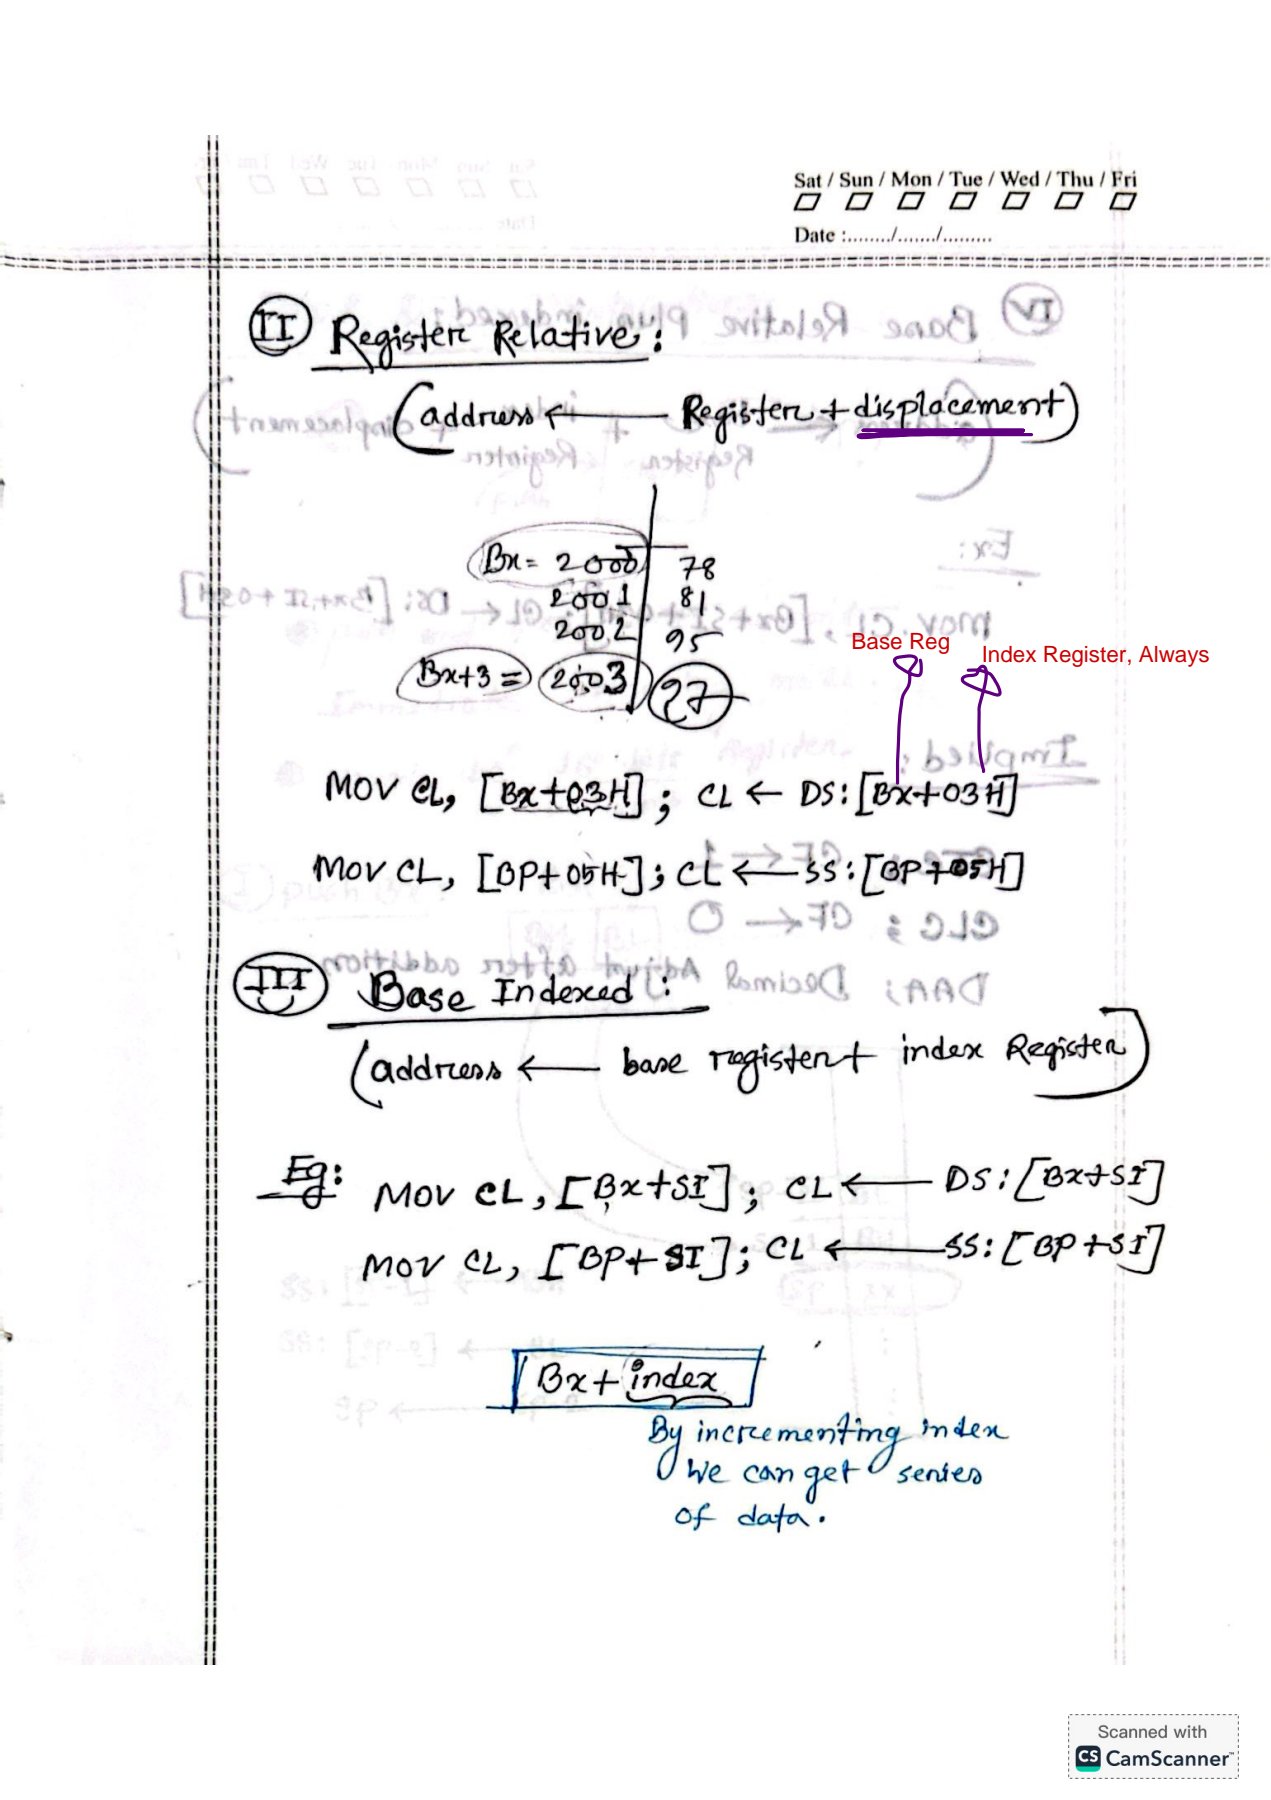 Sat / Sun / Mon / Tue / Wed / Thu / Fri
Date :......../......./.........
II Register Relative :
(address ← Register + displacement)
Bx = 2000 78
2001 81
2002 95
Bx+3 = 2003 27
Base Reg
Index Register, Always
MOV CL, [Bx+03H] ; CL ← DS:[Bx+03H]
MOV CL, [BP+05H] ; CL ← SS:[BP+05H]
III Base Indexed :
(address ← base register + index Register)
Eg:
MOV CL, [Bx+SI]; CL ← DS:[Bx+SI]
MOV CL, [BP+SI]; CL ← SS:[BP+SI]
Bx + index
By incrementing index
we can get series
of data.
Scanned with
CS CamScanner